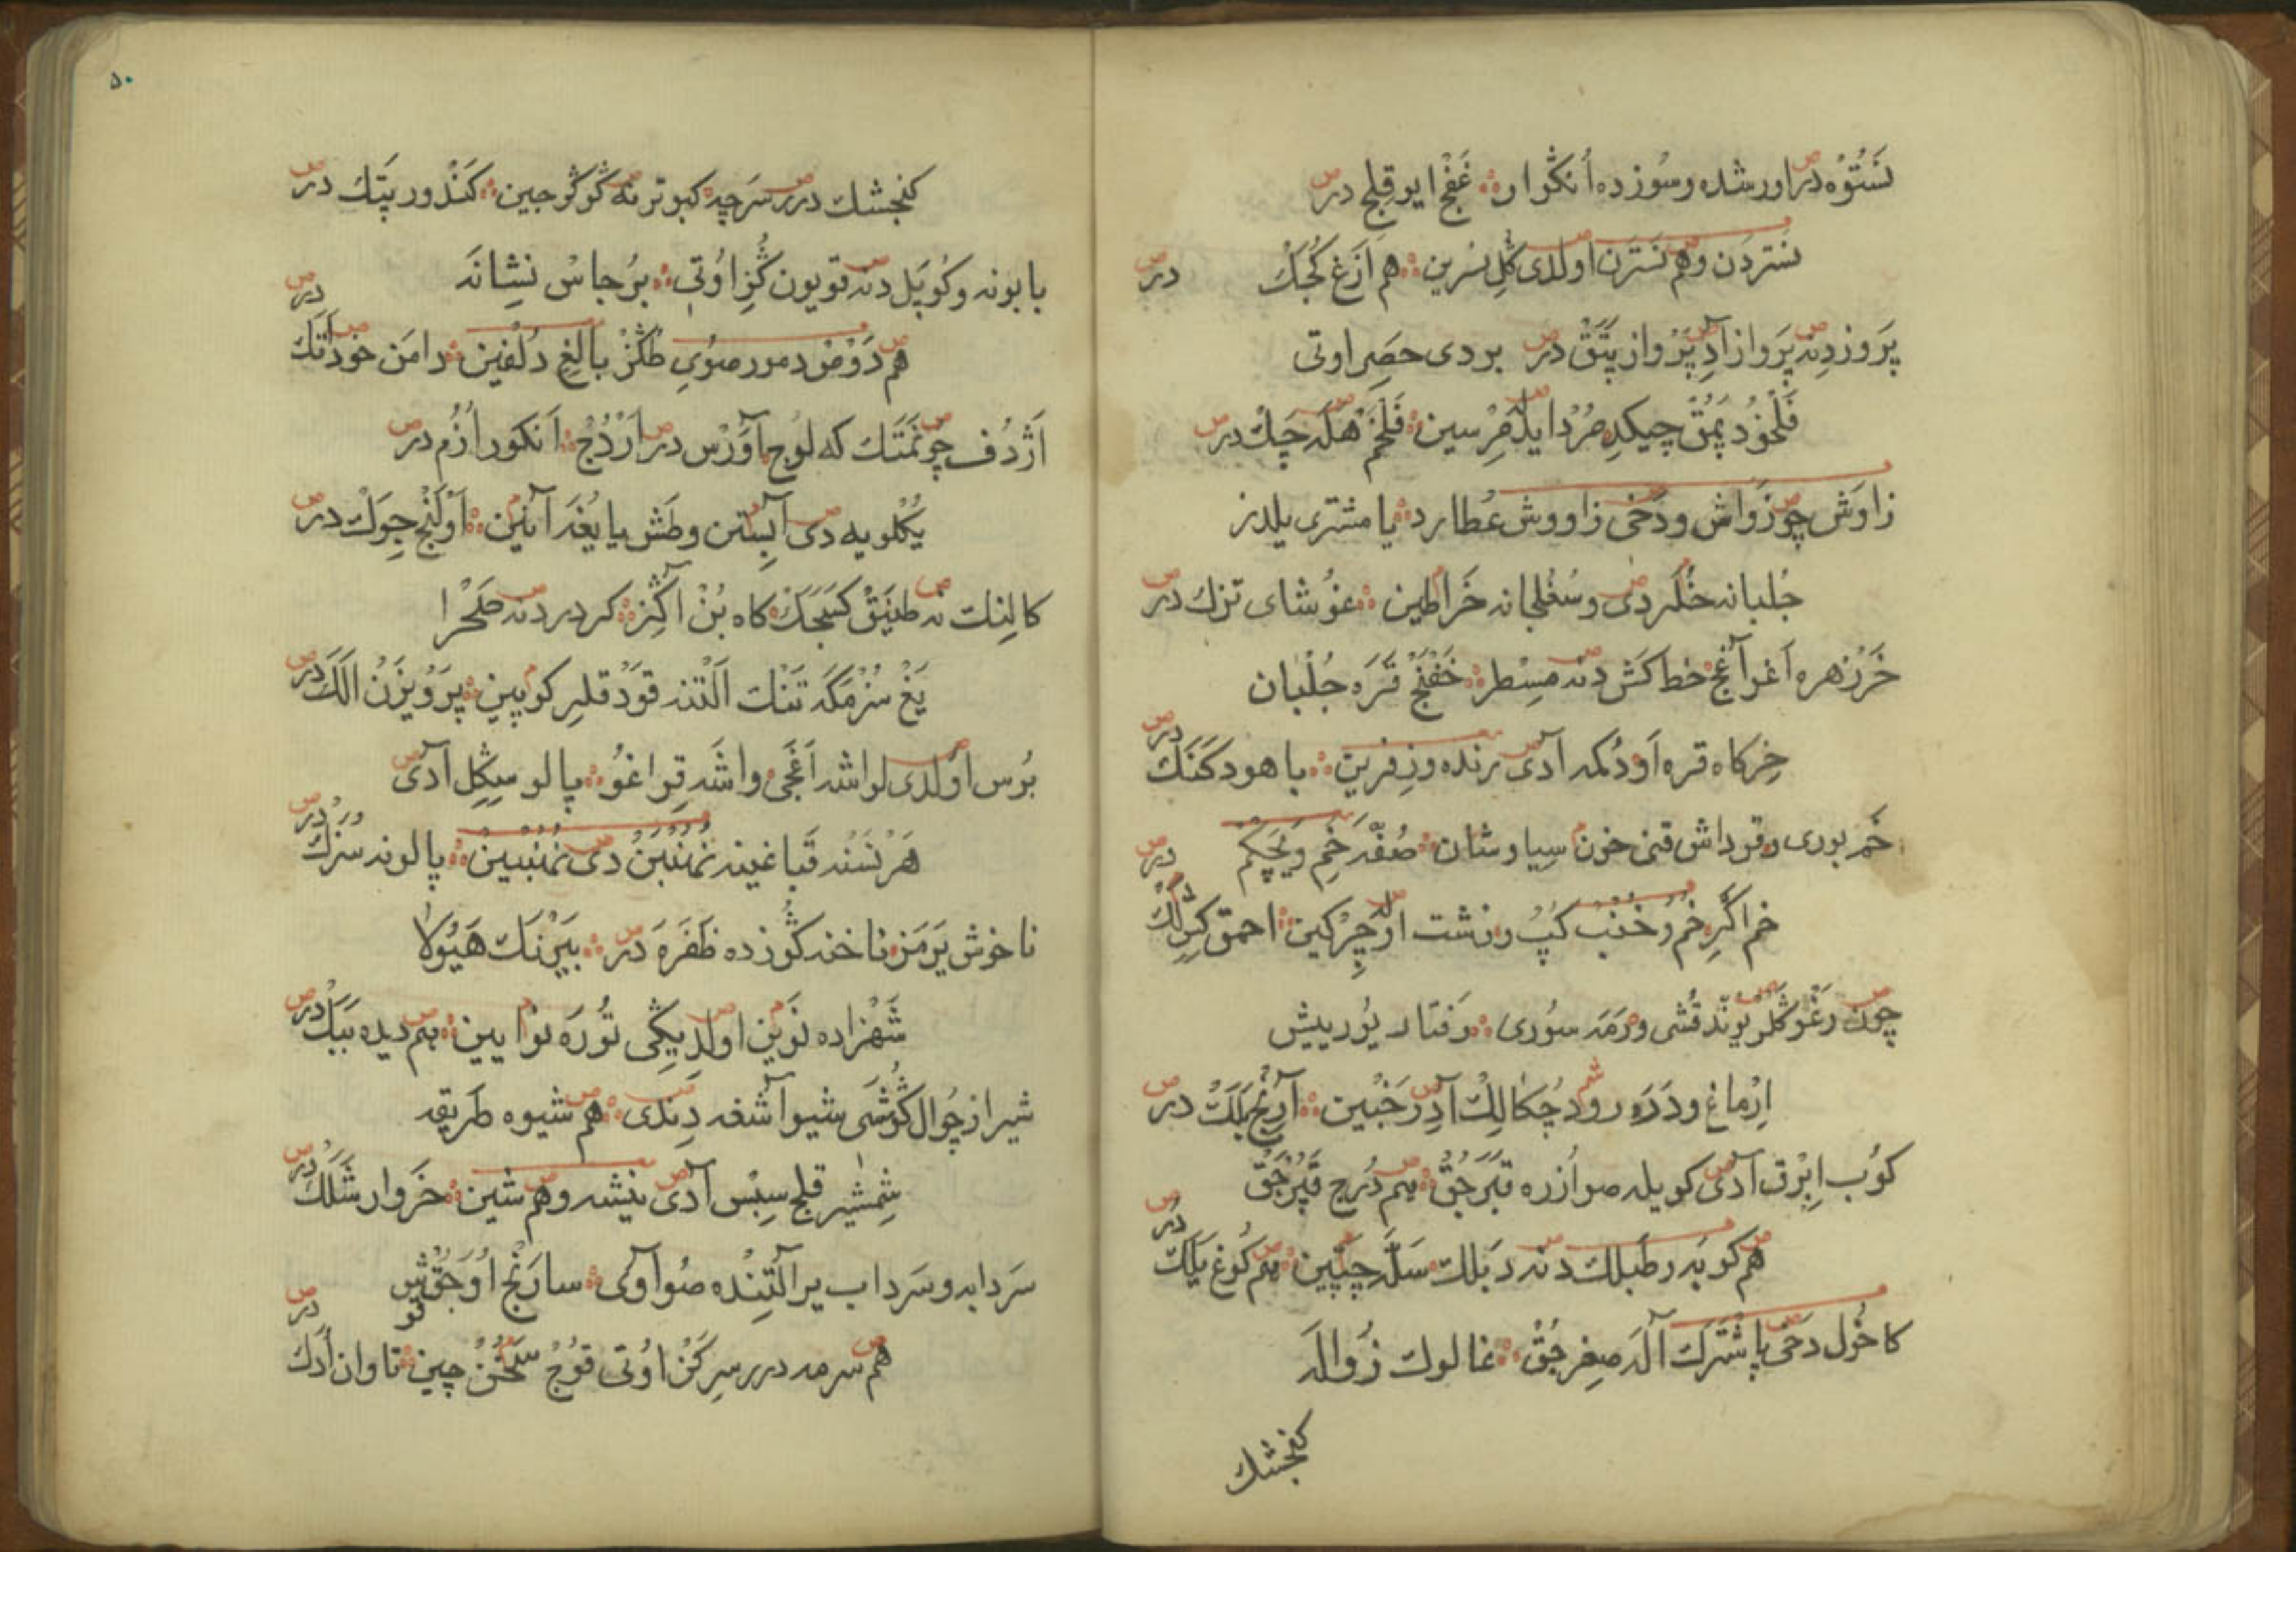 نستوه در اورشده و سوزده انکوار غفج ایو قلج در
نستردن و هم نسترن اولدی کل نسرین هم ازغ کجک در
پروز دنه پرواز آدی پرواز پتق در بردی حصیر اوتی
فلخود پمق چیکدی مرد ایله مرسین فلخم هلک چک در
زاوش چو زواش و دخی زاووش عطارد یا مشتری یلدز
جلبانه خلر دی و سغلجانه خراطین غوشای تزک در
خرزهره اغر آغج خط کش دنه مسطر خفنج قره جلبان
خرکاه قره او دکمه آدی رنده و زفرین باهو دکنک در
خم بوری و قرداش قنی خون سیاوشان صفه خم و یچکم در
خم اکر خم و خنب کپ و زشت اوله چرکین احمق
چون رغو کلر یوند قشی و رمه سوری رفتار یوریش
ارماغ و دره رود چکالک آدی رخبین آرنج بلک در
کوب ابرق آدی کویله صو ازره قبرجق هم درج قپرجق
هم کوبه و طبلک دنه دبلک سله چپین هم کوغ یلک در
کاخول دخی پاشترک آله صغرجق غالوک زواله
کنجشک
٥٠
کنجشک در سرچه کبوتر نه کوکرجین کندور پتک در
بابونه و کوپل دنه قویون کزی اوتی برجاس نشانه در
هم دومو دمور صوی طکز بالغی دلفین دامن خود اتک
اژدف چو نمتک که لوج آورس در اردج انکور ازم در
یکلو یه دی آبستن و طش یا یغه آنین اولنج جولک در
کالنک نه طنیق کسجک کاه بن اکز کردر دنه صلحرا
یغ سزمکه تنک التنه قود قلر کوپین پرویزن الک در
بوس اولدی لواشه اغجی واشه قراغو پالو سکل آدی
هر نسنه قباغینه نهنبن دی نهنبین پالونه سزک در
ناخوش یرمز ناخنه کوزده ظفره در بیرنک هیولا
شهزاده نوین اولد یکی توره نوایین هم دیده ببک در
شیراز چوال کوشی شیوا آشفه دندی هم شیوه طریقه
شمشیر قلج سبس آدی نیشه و هم شین خروار شلک در
سردابه و سرداب یر التنده صو آوی سارنج اوجق قش در
هم سرمه در سرکز اوتی قوج چین تاوان ادک